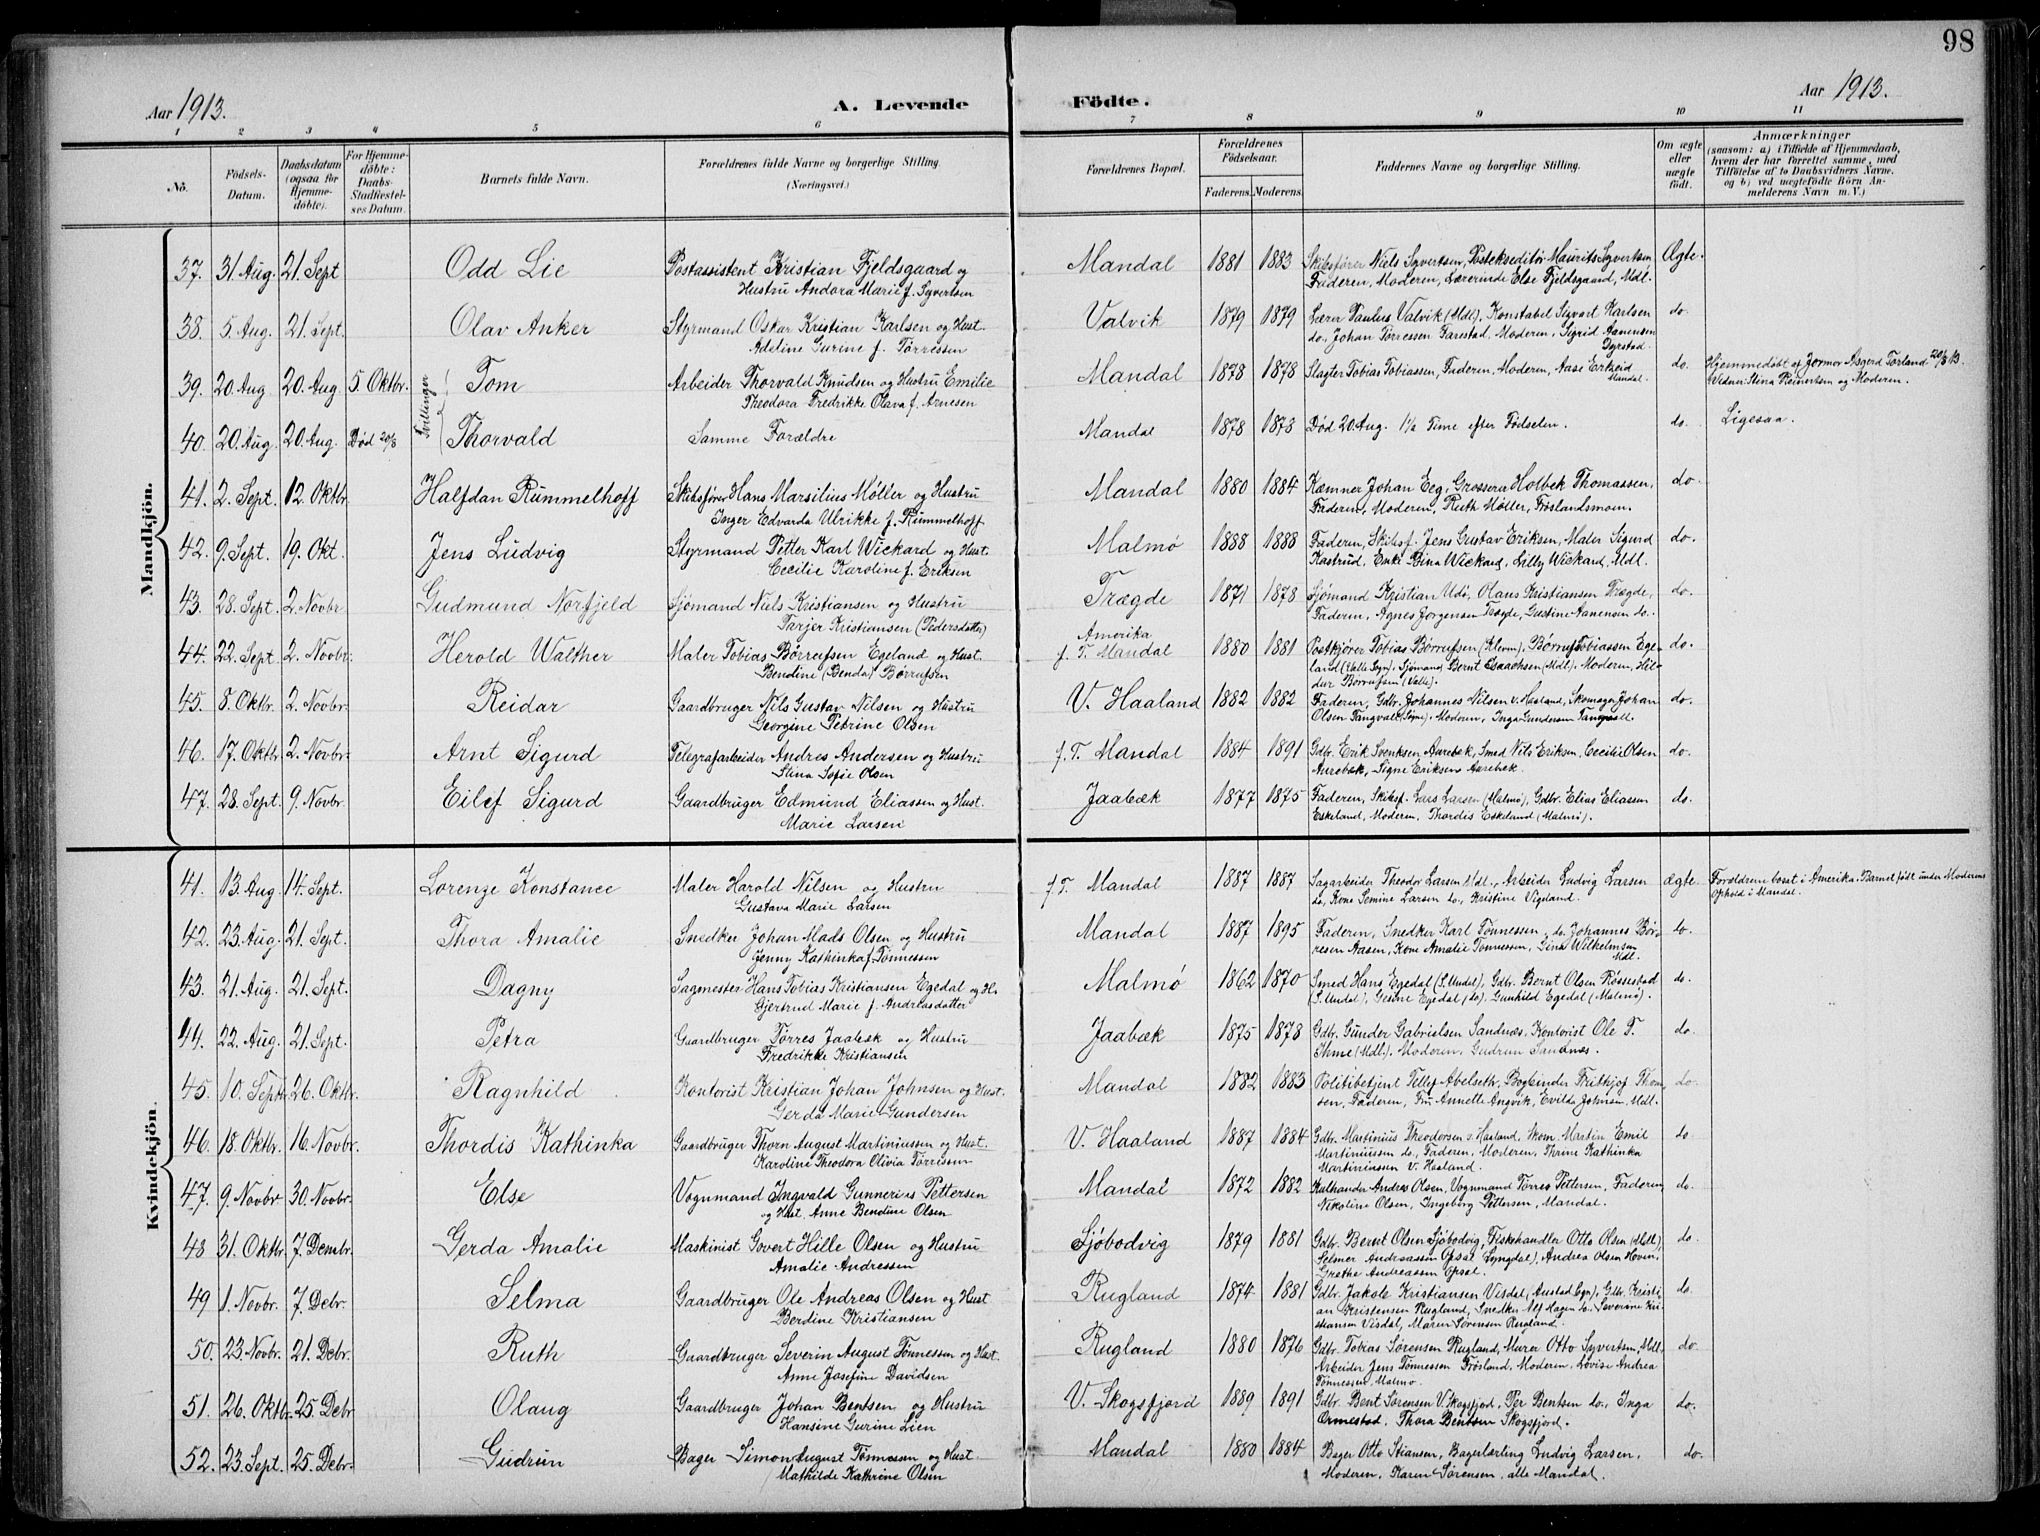 98
Aar 1913. A. Levende Födte. Aar 1913.
1 2 3 4 5 6 7 8 9 10 11
No. Födsels-Datum. Daabsdatum (ogsaa for Hjemme-döbte). For Hjemme-döbte: Daabs-Stadfæstel-ses Datum. Barnets fulde Navn. Forældrenes fulde Navne og borgerlige Stilling. (Næringsvei.) Forældrenes Bopæl. Forældrenes Födselsaar. Faderens. Moderens. Faddernes Navne og borgerlige Stilling. Om ægte eller uægte födt. Anmærkninger (saasom: a) i Tilfælde af Hjemmedaab, hvem der har forrettet samme, med Tilföielse af to Daabsvidners Navne. og b) ved uægtefödte Börn An-melderens Navn m. V.)
Mandkjön.
37. 31. Aug. 21. Sept Odd Lie Postassistent Kristian Fjeldsgaard og Mandal 1881 1883 Skibsfører Niels Syvertsen, Postekspeditør Maurits Syvertsen Ægte.
Hustru Andora Marie f. Syvertsen Faderen, Moderen, Lærerinde Else Fjeldsgaard, Mdl.
38. 5. Aug. 21. Sept. Olav Anker Styrmand Oskar Kristian Karlsen og Hust. Valvik 1879 1879 Lærer Paulus Valvik (Mdl). Konstabel Sigvart Karlsen do.
Adeline Gurine f. Tørressen do, Johan Tørressen Farestad, Moderen, Sigrid Aanensen Dyrstad.
39. 20. Aug 20. Aug 5. Oktbr. Tvillinger Tom Arbeider Thorvald Knudsen og Hustru Emilie Mandal 1878 1878 Slagter Tobias Tobiassen, Faderen, Moderen, Aase Erkeid Mandal do. Hjemmedøbt af Jormor Asgerd Torland 20/8 13.
Theodora Fredrikke Olava f. Arnesen Vidner: Stina Reinertsen og Moderen.
40. 20. Aug 20. Aug. Død 20/8 Thorvald Samme Forældre Mandal 1878 1878 Død 20. Aug. 1½ Time efter Fødselen. do. Ligesaa.
41. 2. Sept. 12. Oktbr. Halfdan Rummelhoff Skibsfører Hans Marsilius Møller og Hustru Mandal 1880 1884 Kæmner Johan Eeg, Grosserer Holbek Thomassen, do.
Inger Edvarda Ulrikke f. Rummelhoff Faderen, Moderen, Ruth Møller, Frøslandsmoen.
42. 9. Sept. 19. Okt. Jens Ludvig Styrmand Petter Karl Wickard og Hust. Malmø 1888 1888 Faderen, Skibsf. Jens Gustav Eriksen, Maler Sigurd do.
Cecilie Karoline f. Eriksen Kastrud, Enke Bina Wickard, Lilly Wickard, Mdl.
43. 28. Sept. 2. Novbr Gudmund Norfjeld Sjømand Niels Kristiansen og Hustru Trægde 1871 1878 Sjømand Kristian Udø, Olaus Kristiansen Trægde, do.
Tarjer Kristiansen (Pedersdatter) Faderen, Agnes Jorgensen Trægde, Gustine Aanensen do.
44. 22. Sept. 2. Novbr. Herold Walther Maler Tobias Børrufsen Egeland og Hust. Amerika f. T. Mandal 1880 1881 Postkjører Tobias Børrufsen (Klevm), Børruf Tobiassen Ege- do.
Bendine (Benda) Børrufsen land (Valle Sgn). Sjømand Bernt Esaachsen (Mdl). Moderen, Hil-
dur Børrufsen (Valle).
45. 8. Oktbr. 2. Novbr. Reidar Gaardbruger Nils Gustav Nilsen og Hustru V. Haaland 1882 1882 Faderen, Gdbr. Johannes Nilsen v. Haaland, Skomager Johan do.
Georgine Petrine Olsen Olsen Tangvall (Søgne). Moderen, Inga Gundersen Tangvall.
46. 17. Oktbr. 2. Novbr. Arnt Sigurd Telegrafarbeider Andres Andersen og Hustru f. T. Mandal 1884 1891 Gdbr. Erik Svenksen Aurebæk, Smed Nils Eriksen, Cecilie Olsen do.
Stina Sofie Olsen Aurebæk, Signe Eriksen Aurebæk.
47. 28. Sept. 9. Novbr. Eilef Sigurd Gaardbruger Edmund Eliassen og Hust. Jaabæk 1877 1875 Faderen, Skibsf. Lars Larsen (Malmø), Gdbr. Elias Eliassen do.
Marie Larsen Eskeland, Moderen, Thordis Eskeland (Malmø).
Kvindekjön.
41. 13. Aug. 14. Sept. Lorenze Konstance Maler Harold Nilsen og Hustru f. T. Mandal 1887 1887 Sagarbeider Theodor Larsen Mdl., Arbeider Ludvig Larsen ægte. Forældrene bosat i Amerika. Barnet født under Moderens
Gustava Marie Larsen do, Kone Semine Larsen do, Kristine Vigeland. Ophold i Mandal.
42. 23. Aug. 21. Sept. Thora Amalie Snedker Johan Mads Olsen og Hustru Mandal 1887 1895 Faderen, Snedker Karl Tønnessen, do. Johannes Bør- do.
Jenny Kathinka f. Tønnessen resen Aasen, Kone Amalie Tønnessen, Gina Wilhelmsen Mdl.
43. 21. Aug. 21. Sept. Dagny Sagmester Hans Tobias Kristiansen Egedal og H. Malmø 1862 1870 Smed Hans Egedal (S. Undal), Gdbr. Bernt Olsen Røssestad do.
Gjertrud Marie f. Andreasdatter (S. Undal), Gusine Egedal (do), Gunhild Egedal (Malmø).
44. 22. Aug. 21. Sept. Petra Gaardbruger Tørres Jaabæk og Hustru Jaabæk 1875 1878 Gdbr. Gunder Gabrielsen Sandnæs, Kontorist Ole T. do.
Fredrikke Kristiansen Ihme (Mdl). Moderen, Gudrun Sandnæs.
45. 10. Septr. 26. Oktbr. Ragnhild Kontorist Kristian Johan Johnsen og Hust. Mandal 1882 1883 Politibetjent Tellef Abelseth, Bogbinder Fritkjof Thom- do.
Gerda Marie Gundersen sen, Faderen, Fru Annette Angvik, Evilda Johnsen, Mdl.
46. 18. Oktbr. 16. Novbr. Thordis Kathinka Gaardbruger Thorn August Martiniussen og Hust. V. Haaland 1887 1884 Gdbr. Martinius Theodorsen v. Haaland, Skom. Martin Emil do.
Karoline Theodora Olivia Tørressen Martiniussen do., Faderen, Moderen, Thrine Kathinka
Martiniussen V. Haaland.
47. 9. Novbr 30. Novbr. Else Vognmand Ingvald Gunnerius Pettersen Mandal 1872 1882 Kulhandler Andres Olsen, Vognmand Tørres Pettersen, Faderen, do.
og Hust. Anne Bendine Olsen Nikoline Olsen, Ingeborg Pettersen, Mandal.
48 31. Oktbr. 7. Dembr. Gerda Amalie Maskinist Govert Hille Olsen og Hustru Sjøbodvig 1879 1881 Gdbr. Bernt Olsen Sjøbodvig, Fiskehandler Otto Olsen (Mdl), do.
Amalie Andressen Selmer Andreassen Opsal (Lyngdal), Andrea Olsen Hoven,
Grethe Andreassen Opsal.
49 1. Novbr. 7. Debr. Selma Gaardbruger Ole Andreas Olsen og Hust Rugland 1874 1881 Gdbr. Jakob Kristiansen Visdal, (Austad Sgn), Gdbr. Kristi- do.
Berdine Kristiansen an Kristensen Rugland, Snedker Alf Hagen do. Severine Kri-
stiansen Visdal, Maren Sørensen Rugland.
50. 23. Novbr. 21. Debr. Ruth Gaardbruger Severin August Tønnessen og Hust. Rugland 1880 1876 Gdbr. Tobias Sørensen Rugland, Murer Otto Syvertsen, Mdl. do.
Anne Josefine Davidsen Arbeider Jens Tønnessen Frøsland, Moderen, Lovise Andrea
Tønnessen, Malmø.
51. 26. Oktbr. 25. Debr Olaug Gaardbruger Johan Bentsen og Hustru V. Skogsfjord 1889 1891 Gdbr. Bent Sørensen V. Skogsfjord, Per Bentsen do., Inga do.
Hansine Gurine Lien Ormestad. Thora Bentsen Skogsfjord.
52. 23. Sept. 25. Debr. Gudrun Bager Simon August Tønnessen og Hust. Mandal 1880 1884 Bager Otto Stiansen, Bagerlærling Ludvig Larsen, do.
Mathilde Kathrine Olsen Moderen, Karen Sørensen, alle Mandal.